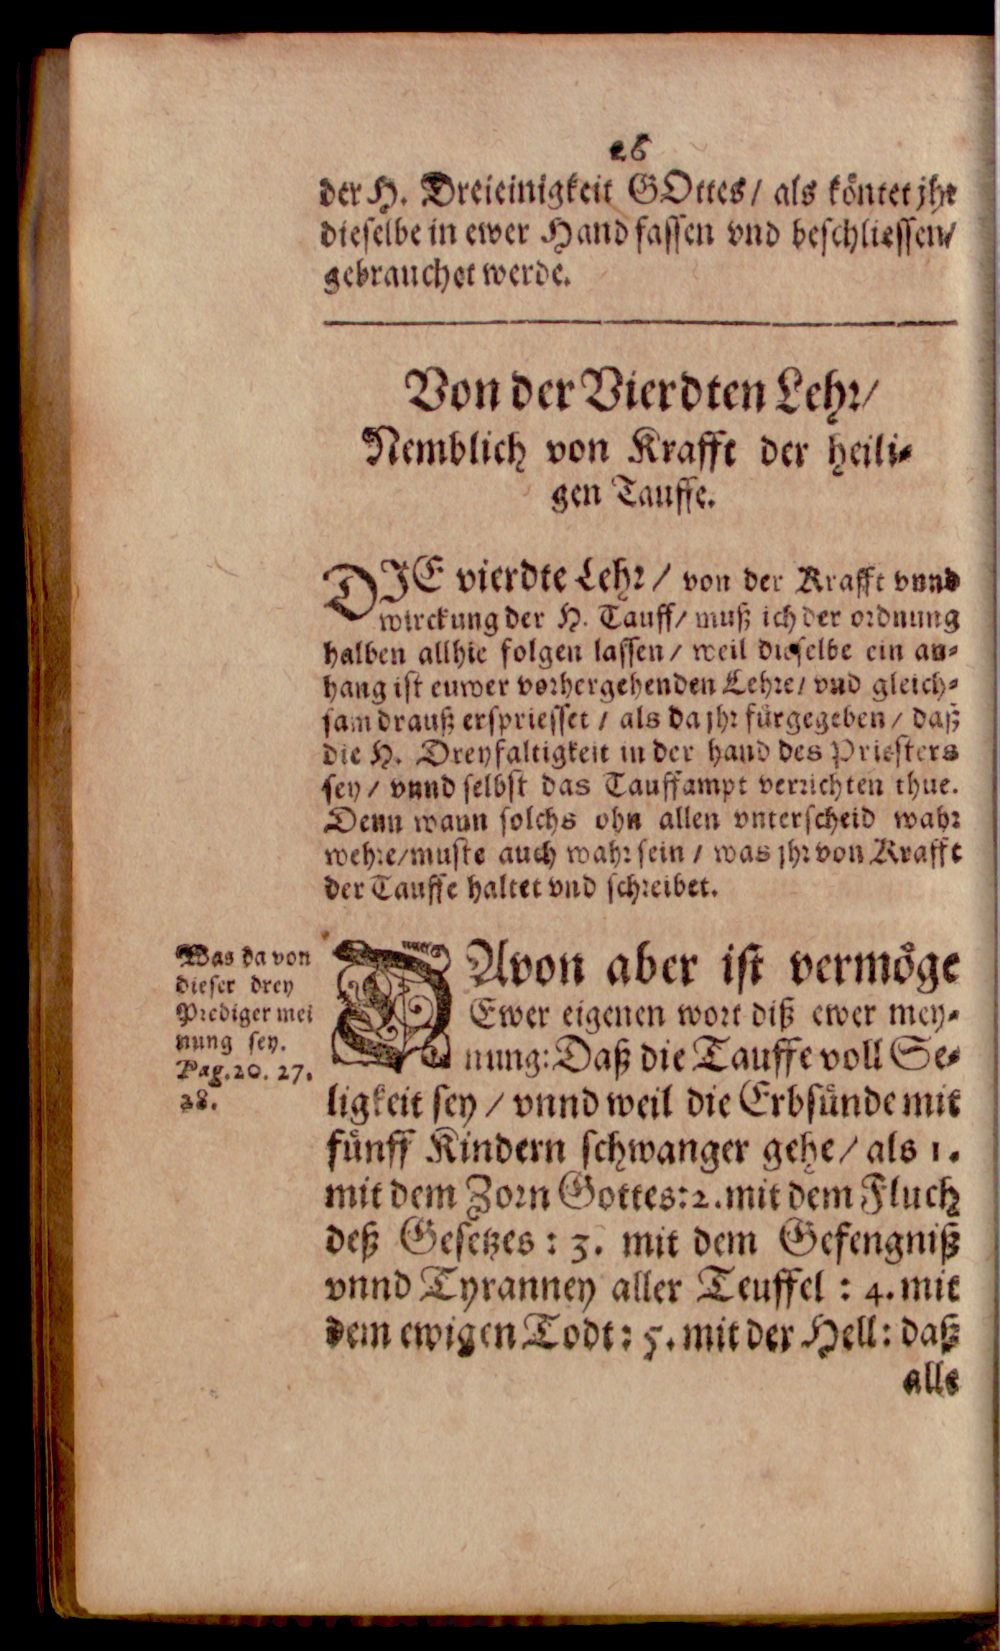 26
der H. Dreieinigkeit GOttes/ als köntet jhr
dieselbe in ewer Hand fassen vnd beschliessen/
gebrauchet werde.
Von der Vierdten Lehr/
Nemblich von Krafft der heili-
gen Tauffe.
DIE vierdte Lehr/ von der Krafft vnnd
wirckung der H. Tauff/ muß ich der ordnung
halben allhie folgen lassen/ weil dieselbe ein an-
hang ist euwer vorhergehenden Lehre/ vnd gleich-
sam drauß erspriesset/ als da jhr fürgegeben/ daß
die H. Dreyfaltigkeit in der hand des Priesters
sey/ vnnd selbst das Tauffampt verrichten thue.
Denn wann solchs ohn allen vnterscheid wahr
wehre/muste auch wahr sein/ was jhr von Krafft
der Tauffe haltet vnd schreibet.
Was da von
dieser drey
Prediger mei
nung sey.
Pag.20. 27.
28.
DAvon aber ist vermöge
Ewer eigenen wort diß ewer mey-
nung: Daß die Tauffe voll Se-
ligkeit sey/ vnnd weil die Erbsünde mit
fünff Kindern schwanger gehe/ als 1.
mit dem Zorn Gottes: 2. mit dem Fluch
deß Gesetzes: 3. mit dem Gefengniß
vnnd Tyranney aller Teuffel: 4. mit
dem ewigen Todt: 5. mit der Hell: daß
alls